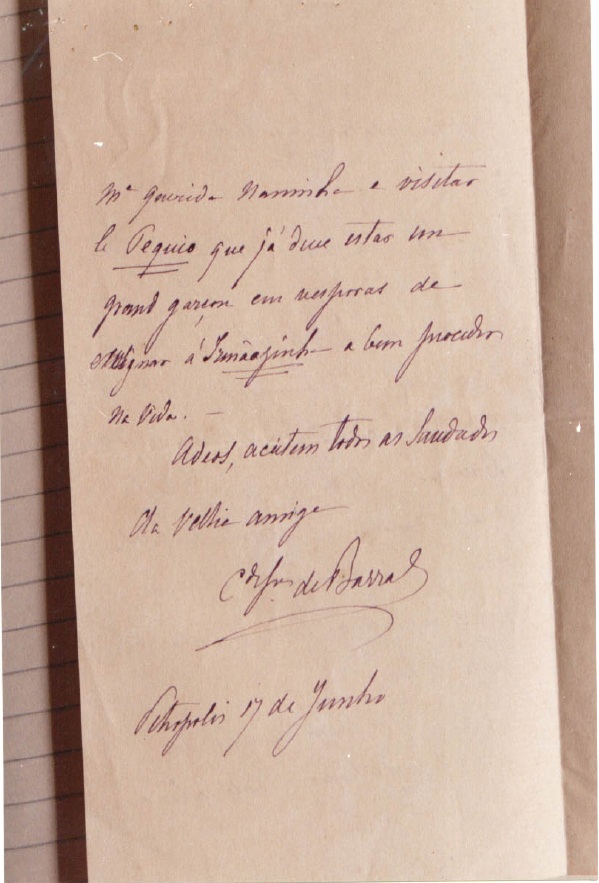 Mª querida Naninha e visitar
le Pequico que já deve estar um
grand garçon em vesporas de
ensignar á Irmãasinha a bem proceder
na vida. —
Adeos, aceitem todos as saudades
da velha amiga
Cdessa de Barral
Petropolis 17 de Junho